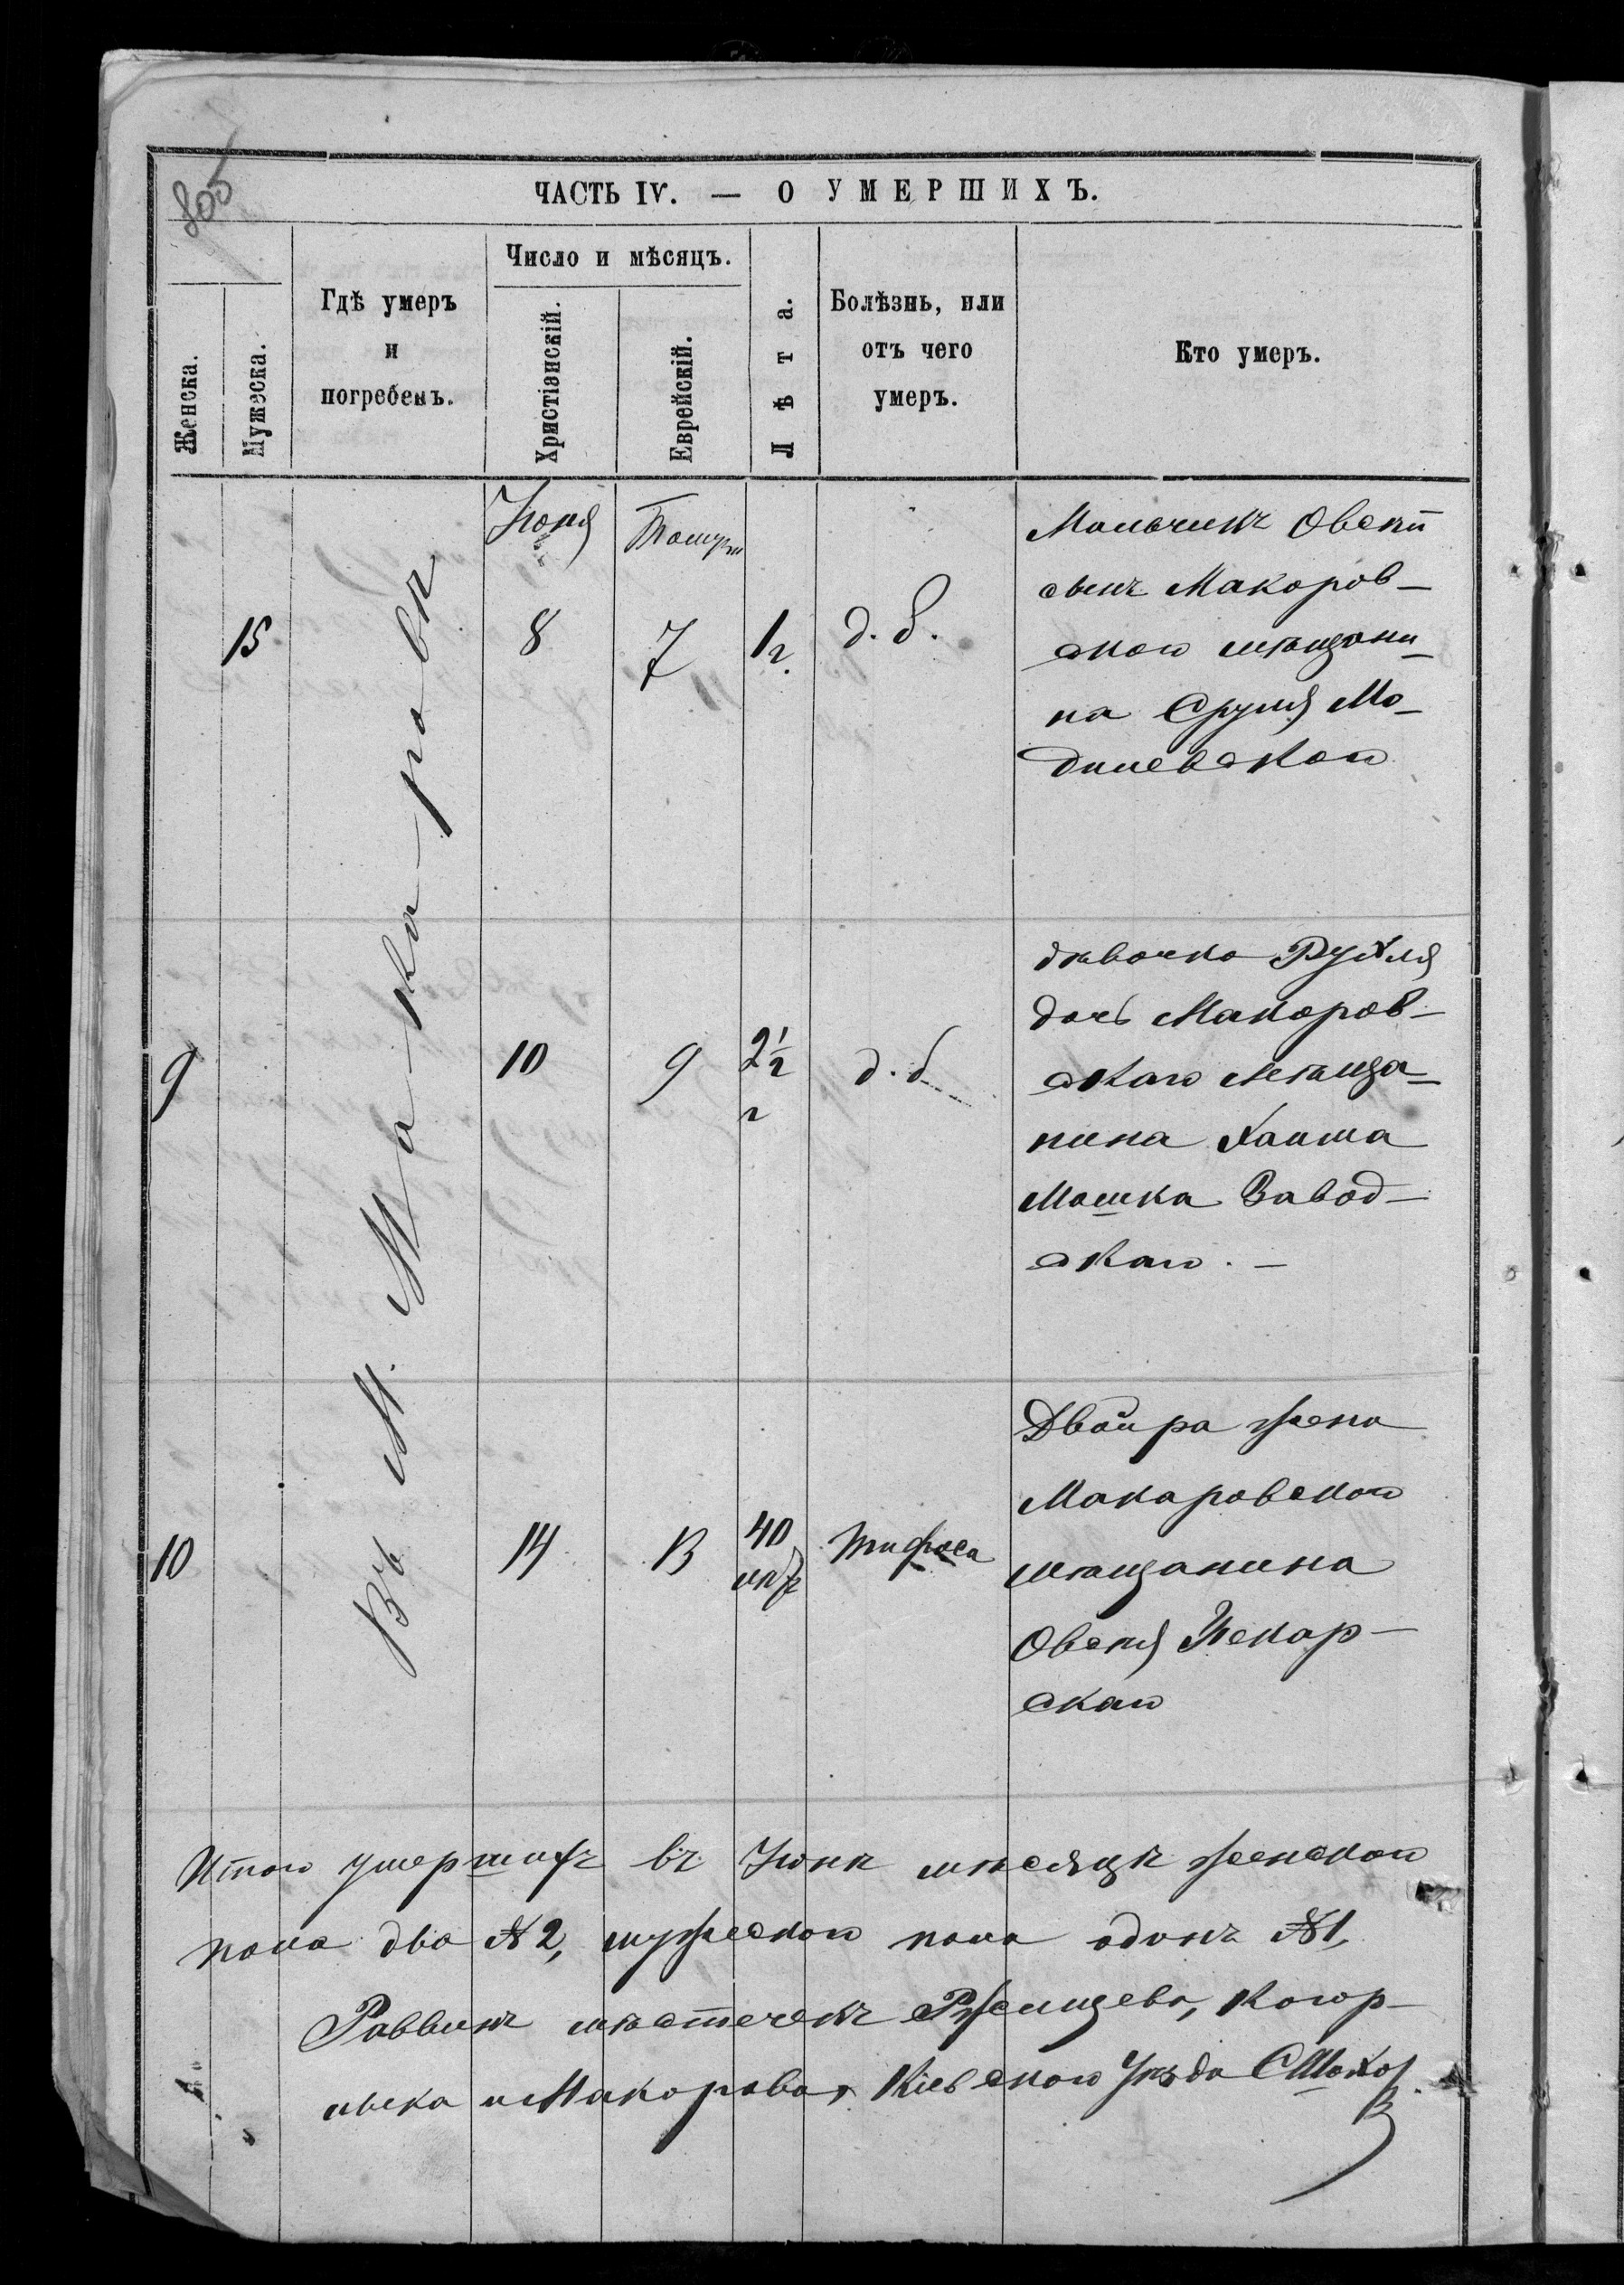 805
ЧАСТЬ IV. — О УМЕРШИХЪ.
Женска.
Мужеска.
Гдѣ умеръ
и
погребенъ.
Число и мѣсяцъ.
Христіанскій.
Еврейскій.
Лѣта.
Болѣзнь, или
отъ чего
умеръ.
Кто умеръ.
Въ М. Ма-ка-ровѣ
Іюня
15
8
7
1 г.
д. б.
Мальчикъ Овсій
сынъ Макаров-
скаго мѣщани-
на Сруля Мо-
дылевскаго
9
10
9
2½
г
д. б.
дѣвочка Рухля
дочь Макаров-
скаго мѣща-
нина Хаима
Мошка Завод-
скаго. —
10
14
13
40
лѣтъ
тифоса
Двойра жена
Макаровскаго
мѣщанина
Овсея Пекар-
скаго
Итого умершихъ въ Іюнѣ мѣсяцѣ женскаго
пола два № 2, мужескаго пола одинъ № 1,
Раввинъ мѣстечекъ Ржищева, Кагар-
лыка и Макарова, Кіевскаго уѣзда